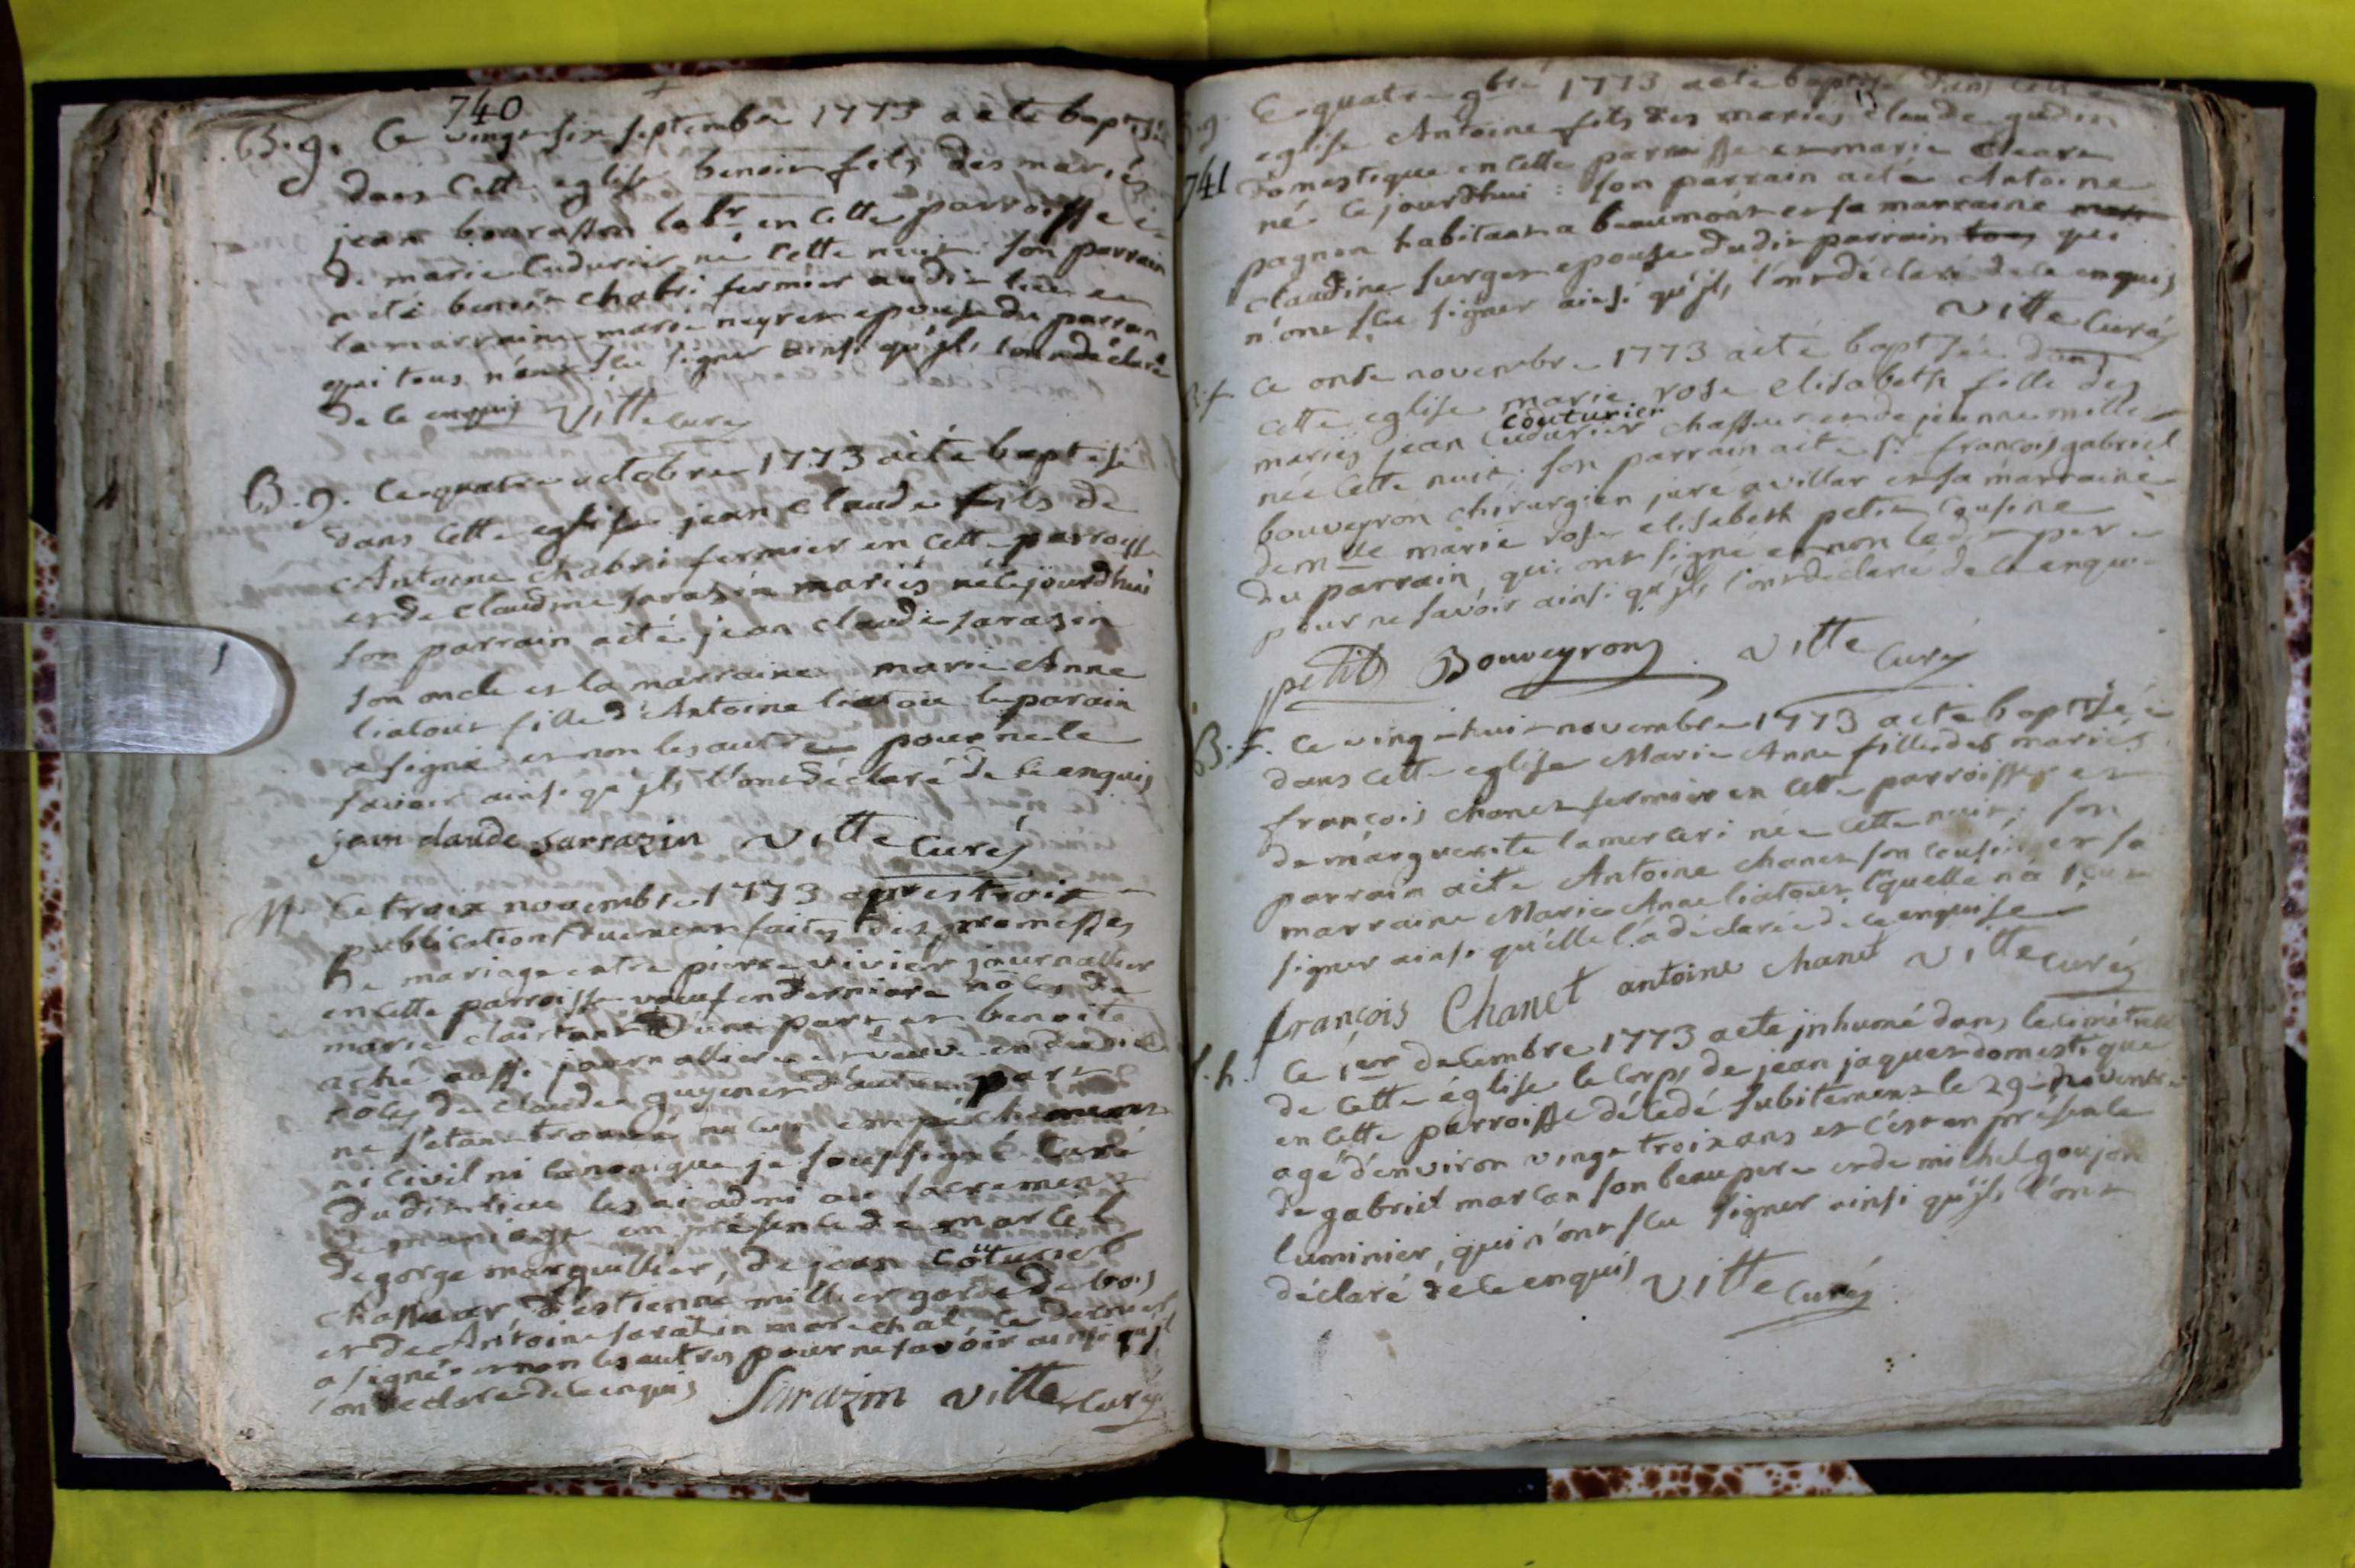 740
B.g. Ce vingt six septembre 1773 a été baptisé
dans cette eglise benoit fils des mariés
jean bourasson labr en cette parroisse et
de marie cudurier né cette nuit. son parrain
a eté benoit chabri fermier audit lieu et
la marraine marie neyret epouse du parrain
qui tous n'ont sçu signer ainsi qu'ils l'ont déclaré
de ce enquis Vitte curé
B.g. Ce quatre octobre 1773 a été baptisé
dans cette eglise jean claude fils de
Antoine chabri fermier en cette parroisse
et de claudine sarasin mariés né ce jourdhui
son parrain a été jean claude sarasin
son oncle et la marraine marie Anne
liatout fille d'Antoine liatout le parain
a signé et non les autres pour ne le
savoir ainsi qu'ils l'ont déclaré de ce enquis
jean claude sarrazin Vitte curé
M Ce troix novembre 1773 apres troix
publications duement faites des promesses
de mariage entre pierre vivier journallier
en cette parroisse veuf en derniere nôces de
marie clairtant d'une part, et benoite
aché aussi journalliere et veuve en derniere
nôces de claude guyenet d'autre part
ne s'etant trouvé aucun empéchement
ni civil ni canonique je soussigné curé
dudit lieu les ai admi au sacrement
de mariage en présence de marcel
degorge marguillier, de jean coturier
chasseur d'estienne millier garde de bois
et de Antoine sarasin marechal le dernier
a signé et non les autres pour ne savoir ainsi qu'il
l'ont declaré de ce enquis Sarazin Vitte curé
B.g. Ce quatre 9bre 1773 a été baptisé dans cette
741 eglise Antoine fils des mariés claude gudin
domestique en cette parroisse et marie
né ce jourdhui : son parrain a été Antoine
pagnon habitant a beaumont et sa marraine
claudine furget epouse dudit parrain tous qui
n'ont sçu signer ainsi qu'ils l'ont déclaré de ce enquis
Vitte curé
B.f. Ce onse novembre 1773 a été baptisée dans
cette eglise marie rose elisabeth fille des
couturier
mariés jean cudurier chasseur et de jeanne mille
née cette nuit. son parrain a été sr. françois gabriel
bouveyron chirurgien juré a villar et sa marraine
demlle marie rose elisabeth petit cousine
du parrain, qui ont signé et non led. pere
pour ne savoir ainsi qu'ils l'ont declaré de ce enqui
petit Bouveyron Vitte curé
B.f. Ce vingt huit novembre 1773 a été baptisée
dans cette eglise Marie Anne fille des mariés
françois chanet fermier en cette parroisse et
de marguerite lamerceri née cette nuit; son
parrain a été Antoine chanet son cousin et sa
marraine Marie Anne liatout laquelle n'a sçu
signer ainsi qu'elle l'a déclarée de ce enquise
françois Chanet antoine chanet Vitte curé
S.h. Ce 1er decembre 1773 a été jnhumé dans le cimetiere
de cette église le corps de jean jaquet domestique
en cette parroisse décedé subitement le 29 novembre
agé d'environ vingt troix ans et c'est en présence
de gabriel marcon son beaupere et de michel goujon
luminier, qui n'ont sçu signer ainsi qu'ils l'ont
déclaré de ce enquis Vitte curé